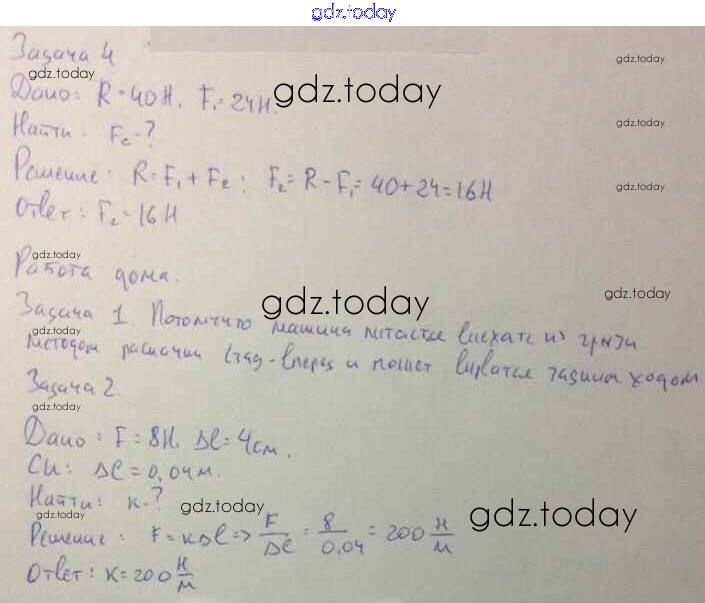 gdz.today
Задача 4
gdz.today
gdz.today
Дано: R = 40Н, F₁ = 24Н.
gdz.today
Найти: F₂ - ?
gdz.today
Решение: R = F₁ + F₂; F₂ = R - F₁ = 40 + 24 = 16Н
gdz.today
Ответ: F₂ = 16Н
gdz.today
Работа дома.
gdz.today
gdz.today
Задача 1. Потому что машина питается виехать из грязи
gdz.today
методом раскачки взад-вперед и может вирватся задним ходом
Задача 2.
gdz.today
Дано: F = 8Н, Δl = 4см.
СИ: Δl = 0,04м.
Найти: к - ?
gdz.today
gdz.today
gdz.today
Решение: F = кΔl => F/Δl = 8/0,04 = 200 Н/м
Ответ: к = 200 Н/м